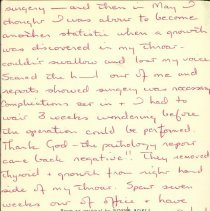 surgery — and then in May I
thought I was about to become
another statistic when a growth
was discovered in my throat -
couldn't swallow and lost my voice.
Scared the h—l out of me and
reports showed surgery was necessary.
Complications set in & I had to
wait 3 weeks wondering before
the operation could be performed.
Thank God - the pathology report
came back negative!! They removed
thyroid & growth from right hand
side of my throat. Spent seven
weeks out of office & have